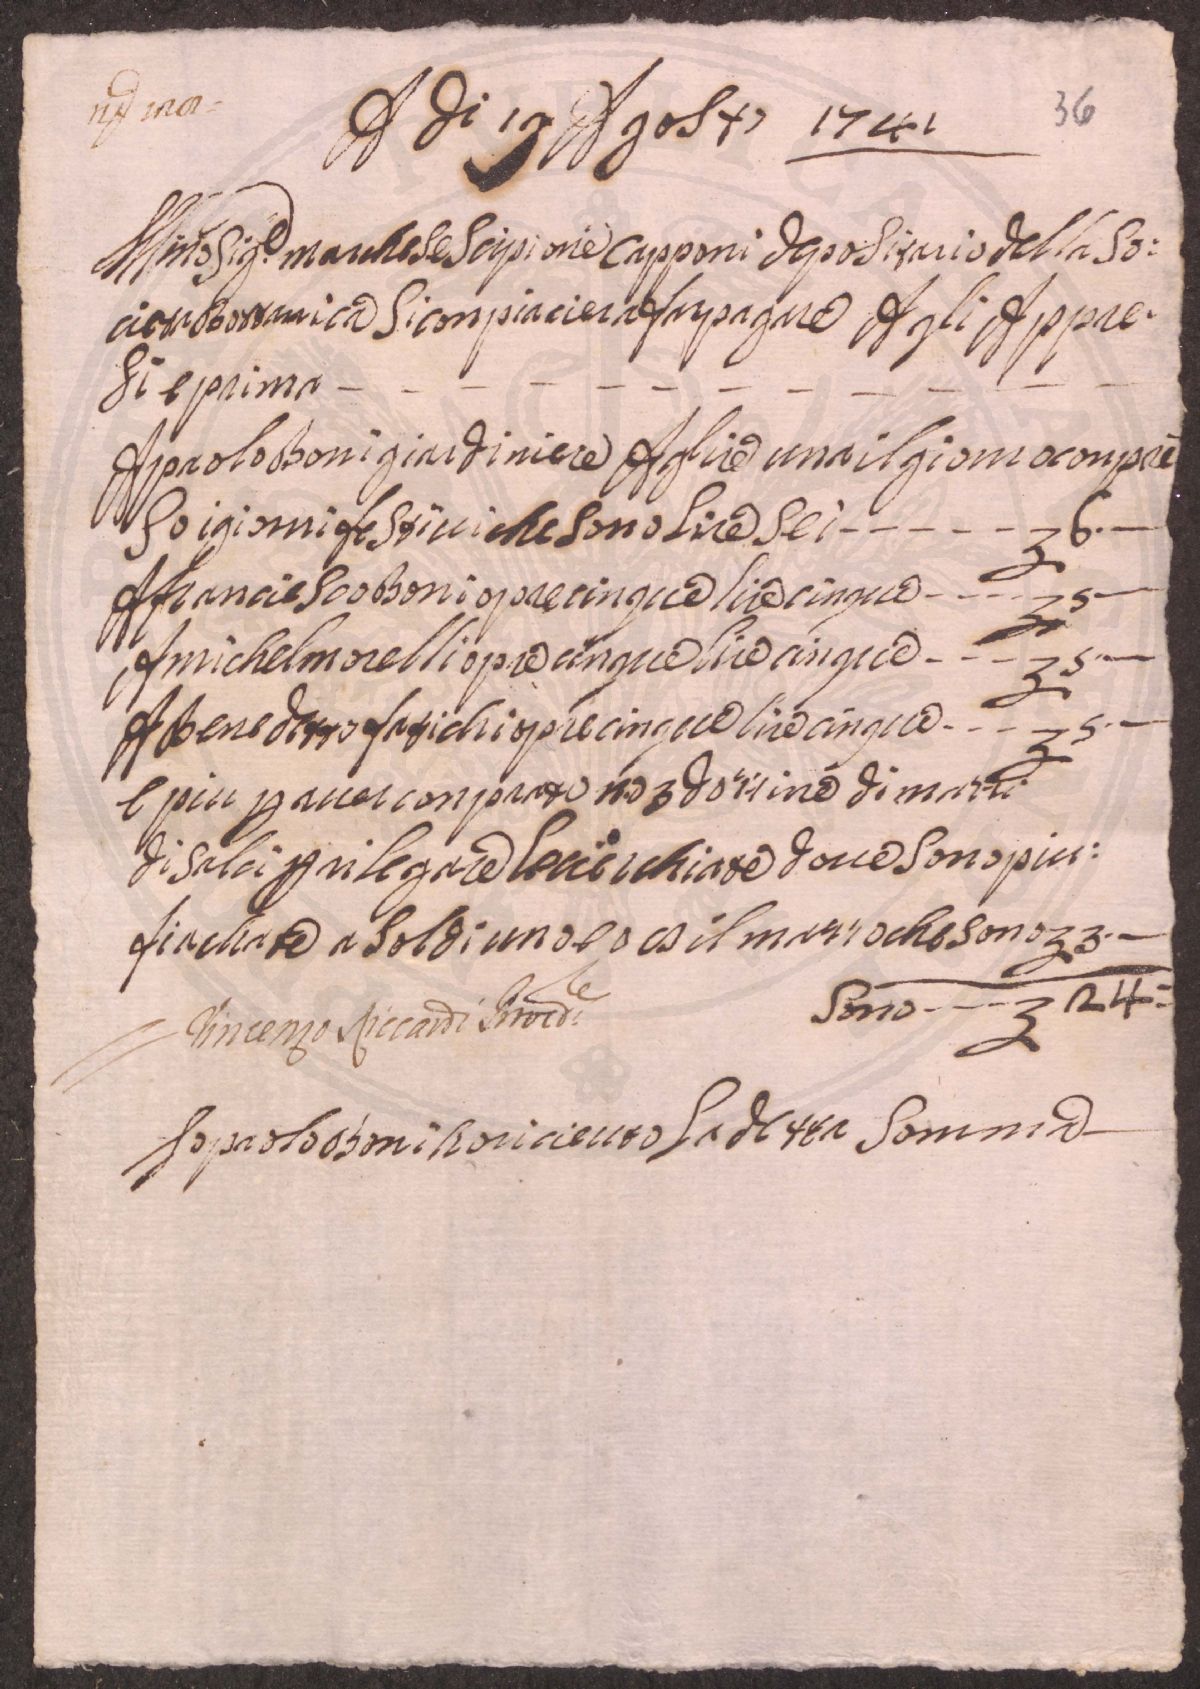 A di 19 Agosto 1741
36
Illmo Sigre marchese Scipione Capponi depositario della So:
cieta Bottanica Si conpiacierà far pagare Agli Appre-
Si e prima
A paolo Boni giardiniere A lire una il giorno conpre
So i giorni festiui che sono lire sei - - - - - £ 6. -
A franciesco Boni opre cinque lire cinque - - - £ 5 -
A michel morelli opre cinque lire cinque - - - £ 5. -
A Benedetto fatichi opre cinque lire cinque - - - £ 5. -
e piu p auer conprato no 3 dozzine di mazzi
di salci p rilegare doue sono piu:
fiachate a soldi uno e il mazzo che sono £ 3. -
Sono - - - £ 24 =
Vincenzo Riccardi Provdre
Io paolo Boni ho riceuto la detta Somma